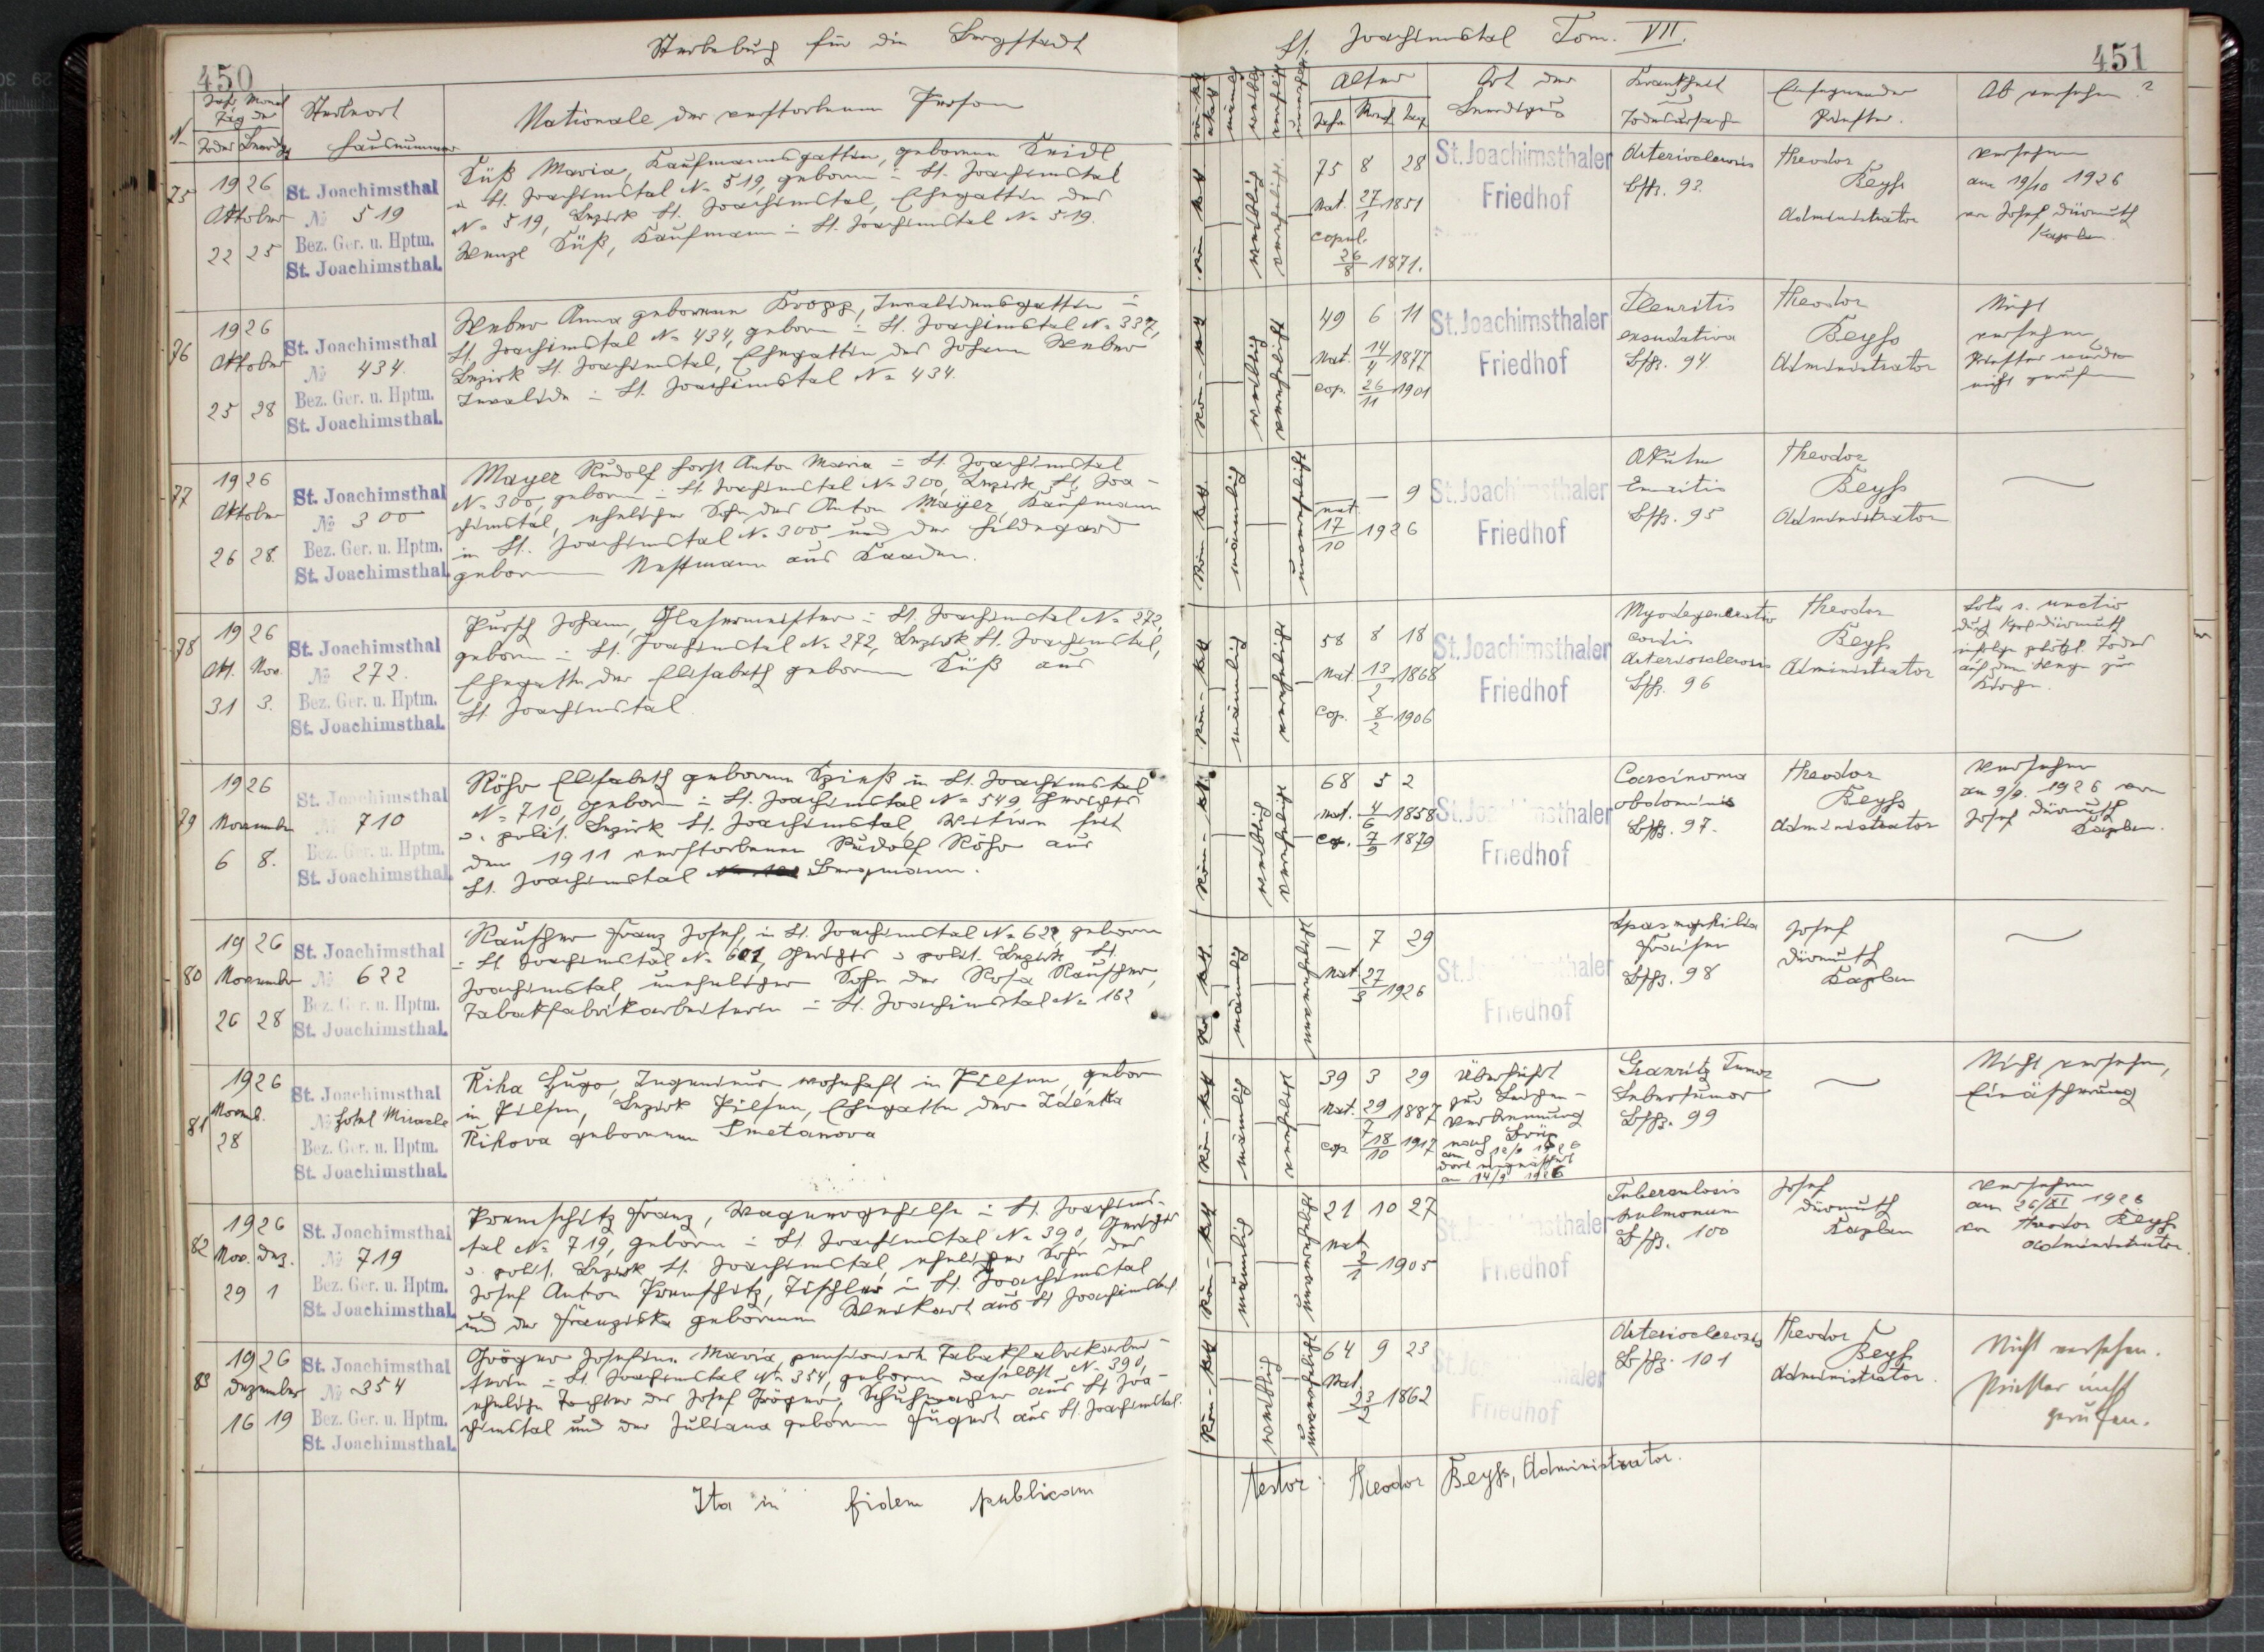 Sterbebuch für die Bergstadt
St. Joachimstal Tom. VII.
450
451
N.
Jahr, Monat
Tag der
Todes Beerdg
Sterbeort
Hausnummer
Nationale der verstorbenen Person
männlich
weiblich
verehelicht
Alter
Jahr Monat Tag
Art der
Beerdigung
Krankheit
und
Todesursache
Einsegnender
Priester.
Ob versehen?
75
1926
Oktober
22 25
St. Joachimsthal
№ 519
Bez. Ger. u. Hptm.
St. Joachimsthal.
Süß Maria, Kaufmannsgattin, geborene Kridl
in St. Joachimstal N= 519, geboren in St. Joachimstal
N= 519, Bezirk St. Joachimstal, Ehegattin des
Wenzl Süß, Kaufmann in St. Joachimstal N= 519.
röm. kath
weiblich
verehelicht
75 8 28
Nat. 27/1 1851
copul.
26/8 1871.
St. Joachimsthaler
Friedhof
Arteriosclerosis
Bsch. 93.
Theodor
Beyss
Administrator
versehen
am 19/10 1926
von Josef Dürmuth
Kaplan.
76
1926
Oktober
25 28
St. Joachimsthal
№ 434.
Bez. Ger. u. Hptm.
St. Joachimsthal.
Weber Anna geborene Kropp, Invalidensgattin in
St. Joachimstal N= 434, geboren in St. Joachimstal N= 337,
Bezirk St. Joachimstal, Ehegattin des Johann Weber
Invalide in St. Joachimstal N= 434.
röm. kath
weiblich
verehelicht
49 6 11
Nat. 14/4 1877
cop. 26/11 1901
St. Joachimsthaler
Friedhof
Pleuritis
exsudativa
Bsch. 94
Theodor
Beyss
Administrator
Nicht
versehen
Priester wurde
nicht gerufen
77
1926
Oktober
26 28.
St. Joachimsthal
№ 300
Bez. Ger. u. Hptm.
St. Joachimsthal.
Mayer Rudolf Horst Anton Maria in St. Joachimstal
N= 300, geboren in St. Joachimstal N= 300, Bezirk St. Joa-
chimstal, ehelicher Sohn des Anton Mayer, Kaufmann
in St. Joachimstal N. 300 und der Hildegard
geborenen Nestmann aus Kaaden.
röm. kath
männlich
unverehelicht
— 9
nat.
17/10 1926
St. Joachimsthaler
Friedhof
Akute
Bsch. 95
Theodor
Beyss
Administrator
78
1926
Okt. Nov.
31 3.
St. Joachimsthal
№ 272.
Bez. Ger. u. Hptm.
St. Joachimsthal.
Pursch Johann, Glasermeister in St. Joachimstal N= 272,
geboren in St. Joachimstal N= 272, Bezirk St. Joachimstal,
Ehegatte der Elisabeth geborenen Süß aus
St. Joachimstal.
röm. kath
männlich
verehelicht
58 8 18
Nat. 13/2 1868
Cop. 8/2 1906
St. Joachimsthaler
Friedhof
Myodegeneratio
cordis
Arteriosclerosis
Bsch. 96
Theodor
Beyss
Administrator
Sola s. unctio
durch Josef Dürmuth
infolge plötzl. Todes
auf dem Wege zur
Kirche.
79
1926
November
6 8.
St. Joachimsthal
№ 710
Bez. Ger. u. Hptm.
St. Joachimsthal.
Röhr Elisabeth geborene Spieß in St. Joachimstal
N= 710, geboren in St. Joachimstal N= 549, Gerichts
u. polit. Bezirk St. Joachimstal, Witwe seit
dem 1911 verstorbenen Rudolf Röhr aus
St. Joachimstal Bergmann.
röm. kath.
weiblich
verehelicht
68 5 2
nat. 4/6 1858
cop. 7/9 1879
St. Joachimsthaler
Friedhof
Carcinoma
abdominis
Bsch. 97.
Theodor
Beyss
Administrator
versehen
am 9/9. 1926 von
Josef Dürmuth
Kaplan.
80
1926
November
26 28
St. Joachimsthal
№ 622
Bez. Ger. u. Hptm.
St. Joachimsthal.
Rauscher Franz Josef, in St. Joachimstal N= 622, geboren
in St. Joachimstal N= 621, Gerichts u. polit. Bezirk St.
Joachimstal, unehelicher Sohn der Rosa Rauscher,
Tabakfabrikarbeiterin in St. Joachimstal N= 162
kath.
männlich
unverehelicht
— 7 29
Nat. 27/3 1926
St. Joachimsthaler
Friedhof
Spasmophilia
Fraisen
Bsch. 98
Josef
Dürmuth
Kaplan
81
1926
Novemb.
28
St. Joachimsthal
№ Hotel Miracle
Bez. Ger. u. Hptm.
St. Joachimsthal.
Řiha Hugo, Ingenieur wohnhaft in Pilsen, gebor
in Pilsen, Bezirk Pilsen, Ehegatte der Zdenka
Řihova geborenen Smetanova
röm. kath
männlich
verehelicht
39 3 29
Nat. 29/7 1887
cop 18/10 1917
Überführt
zur Leichen-
verbrennung
nach Brüx
am 12/9 1926
dort eingeäschert
am 14/9 1926
Lebertumor
Bsch. 99
Nicht versehen,
Einäscherung
82
1926
Nov. Dez.
29 1
St. Joachimsthal
№ 719
Bez. Ger. u. Hptm.
St. Joachimsthal.
Premschitz Franz, Wagnergehilfe in St. Joachims-
tal N= 719, geboren in St. Joachimstal N= 390, Gerichts
u. polit. Bezirk St. Joachimstal, ehelicher Sohn des
Josef Anton Premschitz, Tischler in St. Joachimstal
und der Franziska geborenen Wenikart aus St Joachimstal.
röm. kath
männlich
unverehelicht
21 10 27
Nat
2/1 1905
St. Joachimsthaler
Friedhof
Tuberculosis
pulmonum
Bsch. 100
Josef
Dürmuth
Kaplan
versehen
am 26/XI 1926
von Theodor Beyss
Administrator.
83
1926
Dezember
16 19
St. Joachimsthal
№ 354
Bez. Ger. u. Hptm.
St. Joachimsthal.
Gröger Josefine Maria, pensionierte Tabakfabrikarbei-
terin in St. Joachimstal N= 354, geboren daselbst N= 390,
eheliche Tochter des Josef Gröger, Schuhmacher aus St Joa-
chimstal und der Juliana geborenen Hugert aus St. Joachimstal.
röm. kath
weiblich
unverehelicht
64 9 23
Nat
23/2 1862
St. Joachimsthaler
Friedhof
Arteriosclerosis
Bsch. 101
Theodor
Beyss
Administrator.
Nicht versehen.
Priester nicht
gerufen.
Ita in fidem publicam
testor: Theodor Beyss, Administrator.